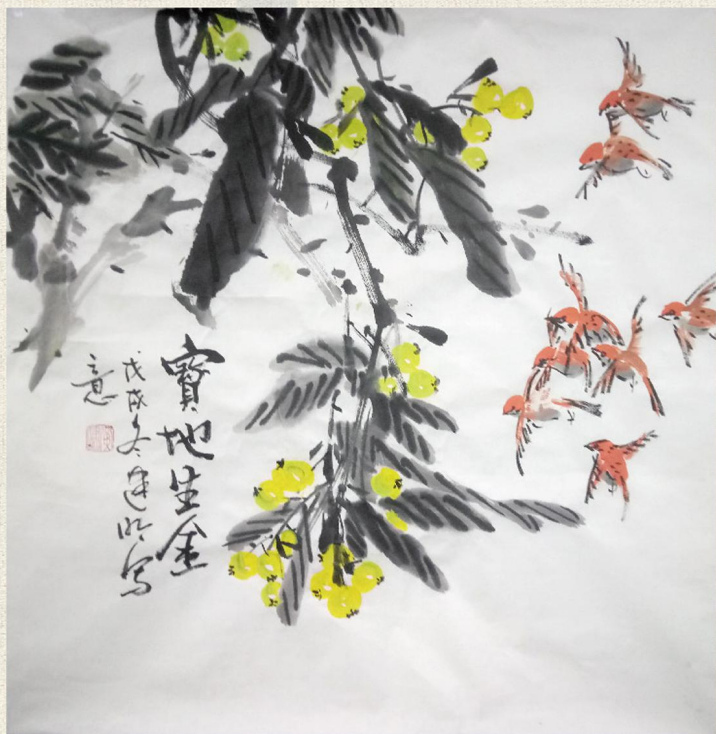 寶地生金
戊戌冬建明写
意